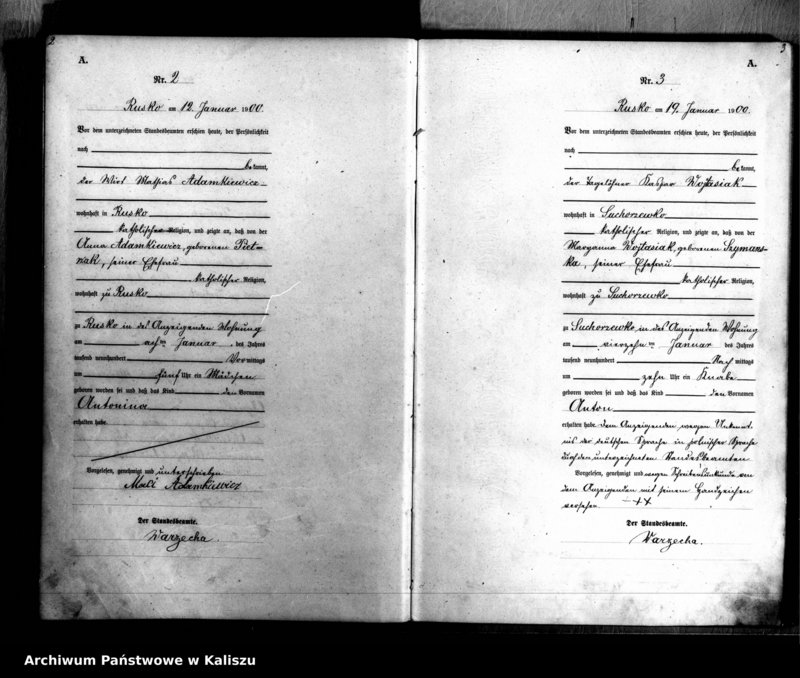 2
A.
Nr. 2
Rusko am 12. Januar 1900.
Vor dem unterzeichneten Standesbeamten erschien heute, der Persönlichkeit
nach
bekannt,
der Wirt Mathias Adamkiewicz
wohnhaft in Rusko
katholischer Religion, und zeigte an, daß von der
Anna Adamkiewicz, geborenen Piet=
niak, seiner Ehefrau
katholischer Religion,
wohnhaft zu Rusko
zu Rusko in des Anzeigenden Wohnung
am achten Januar des Jahres
tausend neunhundert Vormittags
um fünf Uhr ein Mädchen
geboren worden sei und daß das Kind den Vornamen
Antonina
erhalten habe.
Vorgelesen, genehmigt und unterschrieben
Adamkiewicz
Der Standesbeamte.
Warzecha.
3
A.
Nr. 3
Rusko am 19. Januar 1900.
Vor dem unterzeichneten Standesbeamten erschien heute, der Persönlichkeit
nach
bekannt,
der Tagelöhner Kaspar Wojtasiak
wohnhaft in Suchorzewko
katholischer Religion, und zeigte an, daß von der
Maryanna Wojtasiak, geborenen Szymans=
ka, seiner Ehefrau
katholischer Religion,
wohnhaft zu Suchorzewko
zu Suchorzewko, in des Anzeigenden Wohnung
am vierzehnten Januar des Jahres
tausend neunhundert Nachmittags
um zehn Uhr ein Knabe
geboren worden sei und daß das Kind den Vornamen
Anton
erhalten habe. Dem Anzeigenden wegen Unkennt=
nis der deutschen Sprache in polnischer Sprache
durch den unterzeichneten Standesbeamten
Vorgelesen, genehmigt und wegen Schreibensunkunde von
dem Anzeigenden mit seinem Handzeichen
versehen. +++
Der Standesbeamte.
Warzecha.
Archiwum Państwowe w Kaliszu